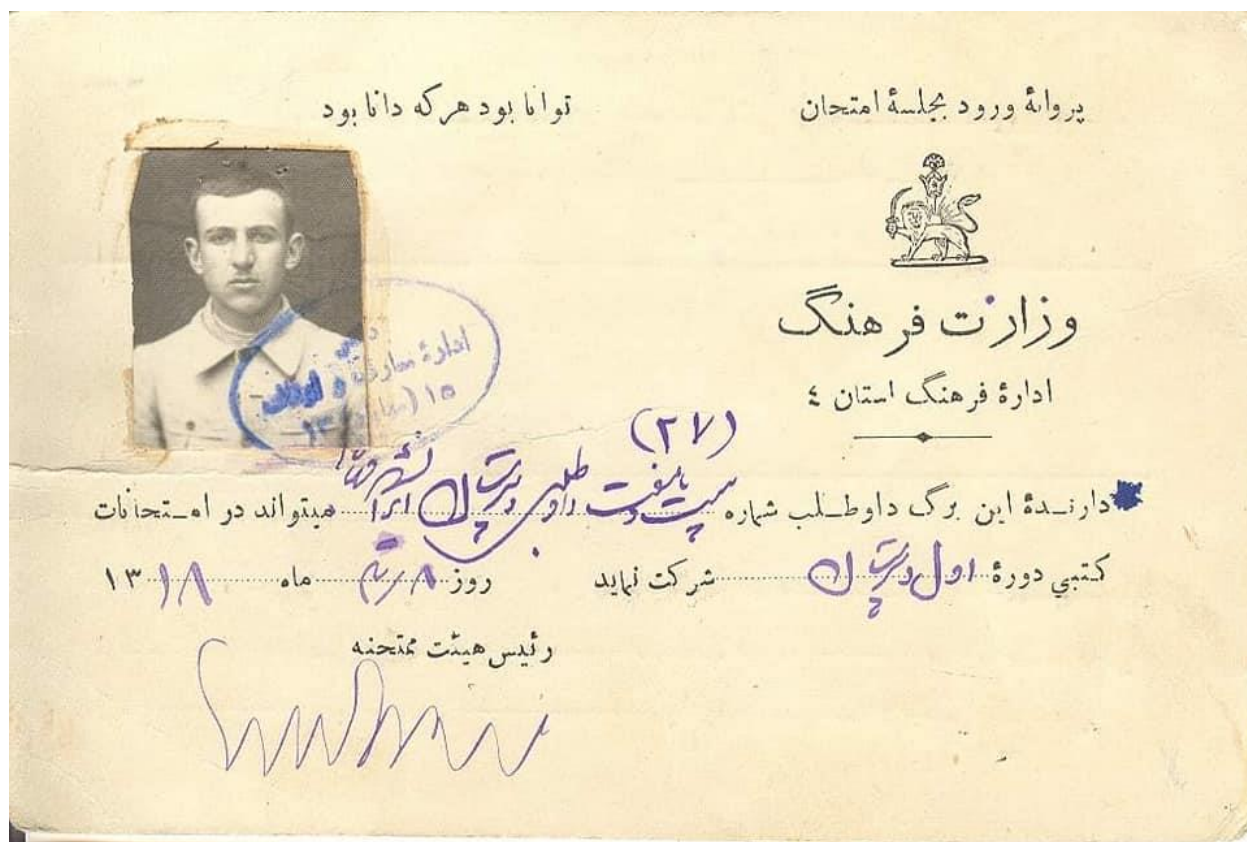 پروانهٔ ورود بجلسهٔ امتحان
توانا بود هرکه دانا بود
وزارت فرهنگ
ادارهٔ فرهنگ استان ٤
ادارهٔ معارف و اوقاف
۱۵
(۲۷)
دارندهٔ این برگ داوطلب شماره بیست و هفت داوطلبی میتواند در امتحانات
کتبي دورهٔ اول شرکت نماید روز ۸ ماه ۱۳۱۸
رئیس هیئت ممتحنه